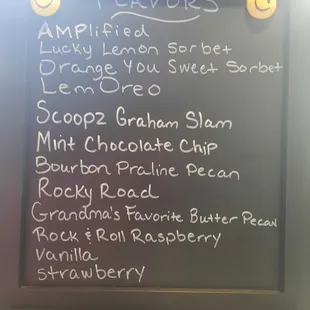 FLAVORS
AMPlified
Lucky Lemon Sorbet
Orange You Sweet Sorbet
LemOreo
Scoopz Graham Slam
Mint Chocolate Chip
Bourbon Praline Pecan
Rocky Road
Grandma's Favorite Butter Pecan
Rock & Roll Raspberry
Vanilla
Strawberry